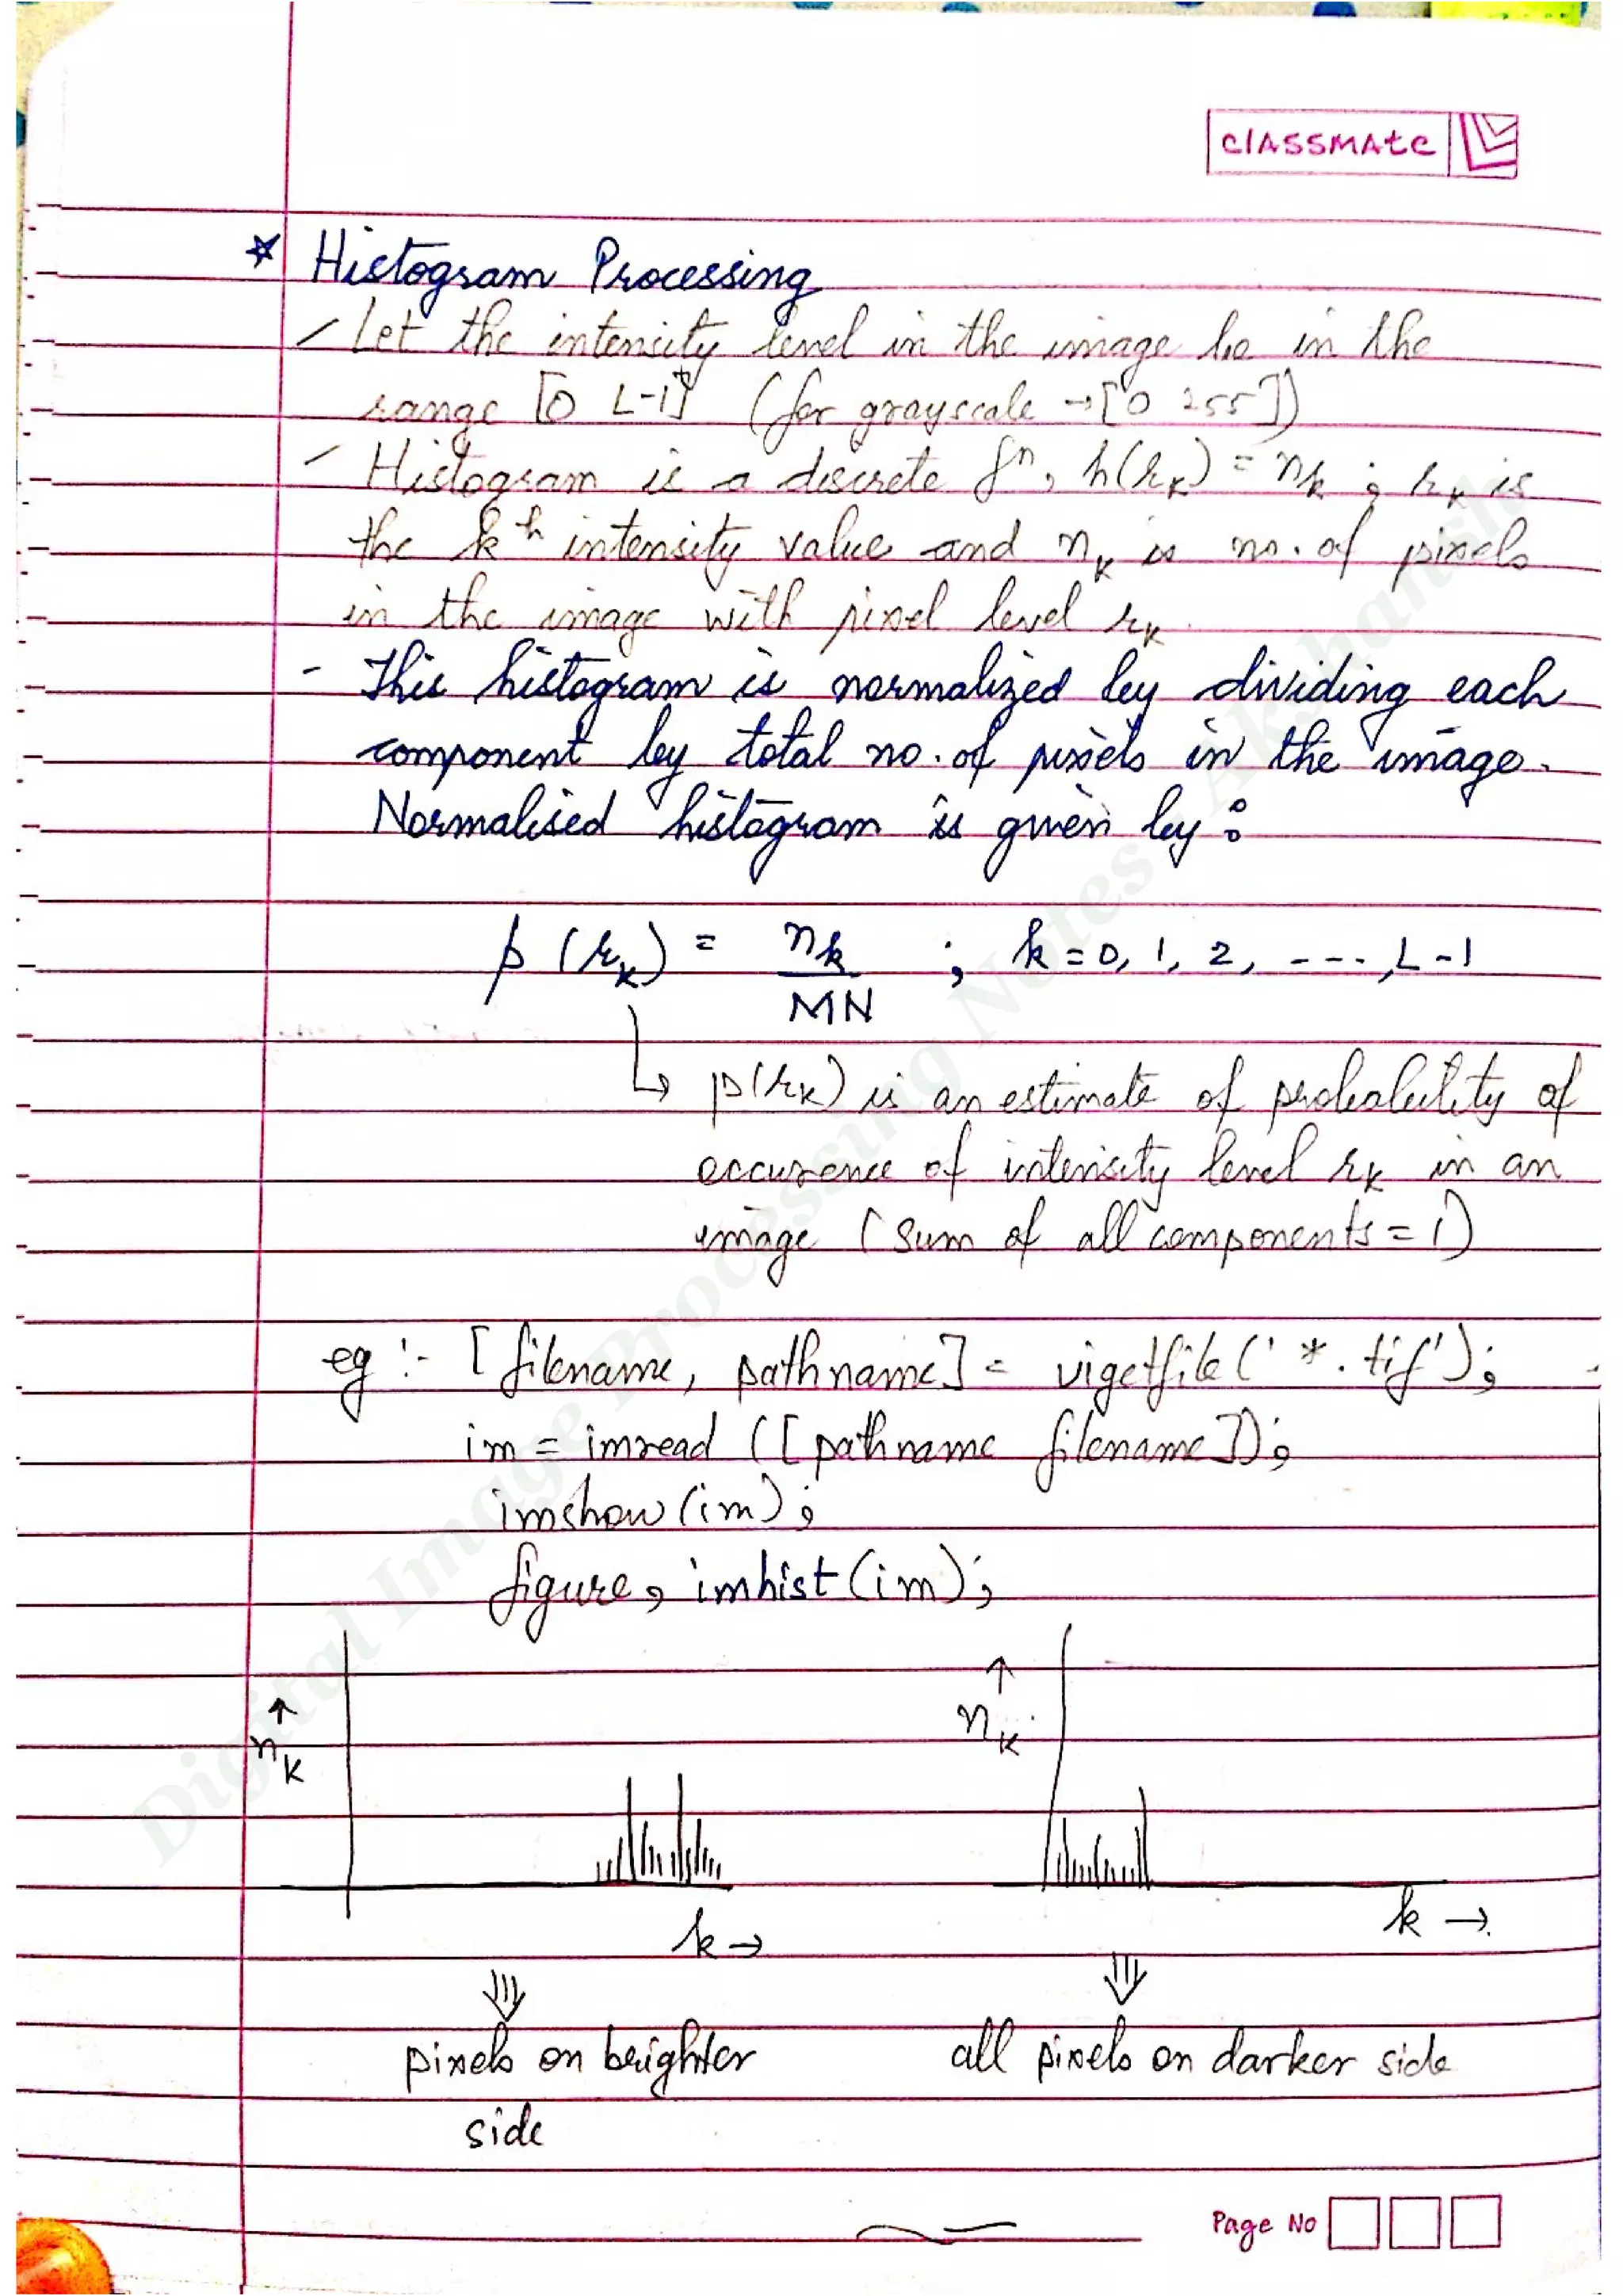 classmate
* Histogram Processing
- Let the intensity level in the image be in the
range [0 L-1] (for grayscale → [0 255])
- Histogram is a discrete fⁿ, h(rₖ) = nₖ ; rₖ is
the kᵗʰ intensity value and nₖ is no. of pixels
in the image with pixel level rₖ.
- This histogram is normalized by dividing each
component by total no. of pixels in the image.
Normalised histogram is given by :
p (rₖ) = nₖ / MN ; k = 0, 1, 2, ----, L-1
↳ p(rₖ) is an estimate of probability of
occurence of intensity level rₖ in an
image (sum of all components = 1)
eg :- [filename, pathname] = vigetfile('*.tif');
im = imread ([pathname filename]);
imshow (im);
figure, imhist (im);
↑ nₖ
↑ nₖ
k →
k →
pixels on brighter
side
all pixels on darker side
Page No
Digital Image Processing Notes Akshansh